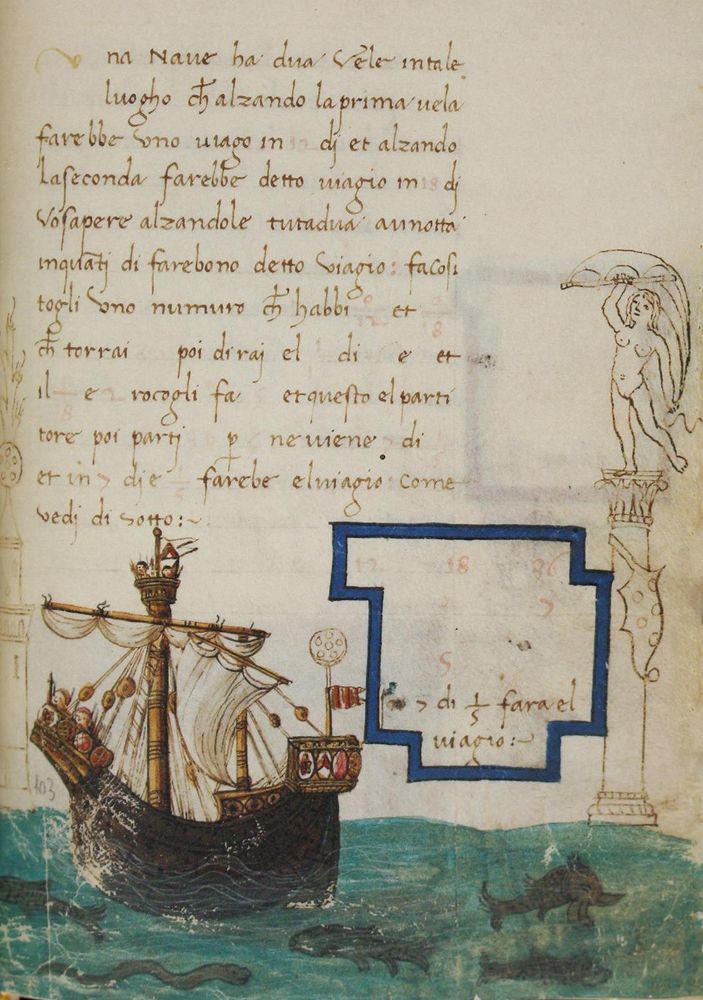 na Naue ha dua Vele in tale
luogho ch̄ alzando la prima uela
farebbe vno uiago in 12 dj et alzando
La seconda farebbe detto uiagio in 18 dj
Vo sapere alzandole tutadua aunotta
inquatj di farebono detto viagio: fa cosi
togli vno numuro ch̄ habbi 0/12 et 0/18
ch̄ torrai poi di raj el di e et
il 1/18 e 2 rocogli fa et questo el parti
tore poi parti p̄ ne viene di
et in 7 dj e 1/5 farebe el viagio: Come
vedj di sotto:~
12 18 36
7
5
7 di 1/5 fara el
viagio:~
103